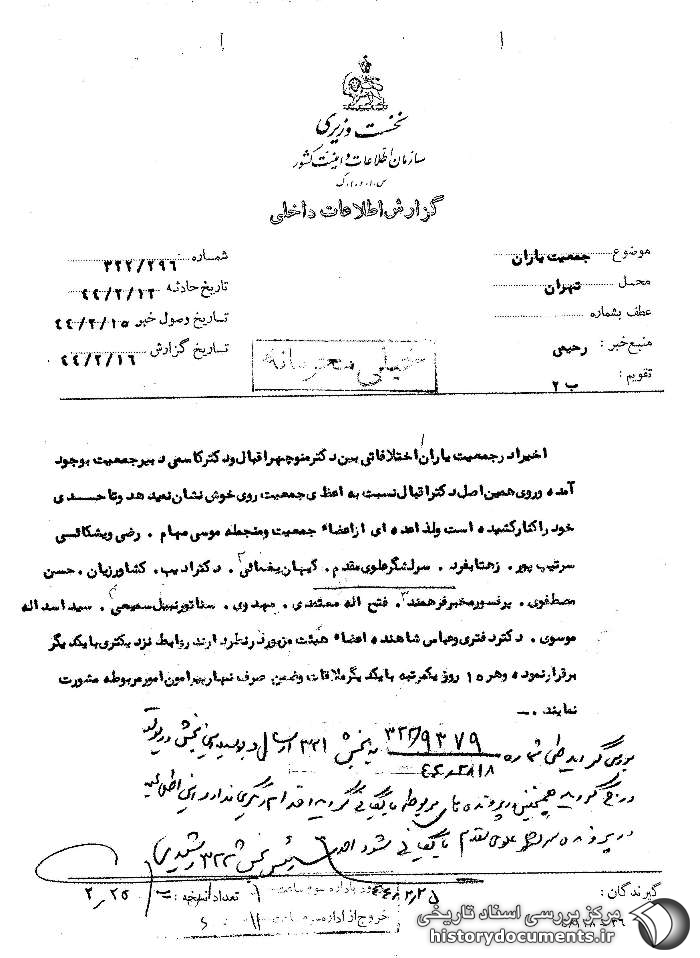 نخست وزیری
سازمان اطلاعات و امنیت کشور
س.ا.و.ا.ک
گزارش اطلاعات داخلی
موضوع جمعیت یاران
محل تهران
عطف بشماره
منبع خبر : رحیمی
تقویم : ب ۲
شماره ۳۲۲/۲۹۶
تاریخ حادثه ۴۴/۲/۱۲
تاریخ وصول خبر ۴۴/۲/۱۵
تاریخ گزارش ۴۴/۲/۱۶
خیلی محرمانه
اخیرا در جمعیت یاران اختلافاتی بین دکتر منوچهر اقبال و دکتر کاسمی دبیر جمعیت بوجود
آمده و روی همین اصل دکتر اقبال نسبت به اعضای جمعیت روی خوش نشان نمیدهد و تا حدی
خود را کنار کشیده است ولذا عده ای از اعضاء جمعیت و منجمله موسی مهام . رضی ویشکائی
سرتیپ پور . زهتابفرد . سرلشگر علوی مقدم . کیهان یغمائی . دکتر ادیب . کشاورزیان . حسن
مصطفوی . پرفسور مخبر فرهمند . فتح اله معتمدی . مهدوی . سناتور نبیل سمیعی . سید اسداله
موسوی . دکتر دفتری و عباس شاهنده اعضاء هیئت مزبور در نظر دارند روابط نزدیکتری با یکدیگر
برقرار نموده و هر ۱۵ روز یکمرتبه با یکدیگر ملاقات و ضمن صرف نهار پیرامون امور مربوطه مشورت
نمایند . ـ
شماره ۳۲۲/۹۳۷۹ به بخش ۳۲۱
۴۴/۲/۱۸
همچنین در پرونده های مربوطه بایگانی گردید
در پرونده سرلشگر علوی مقدم بایگانی شود
رئیس بخش ۳۲۲ رشیدی
۴۴/۲/۲۵
گیرندگان :
تعداد نسخه :
خروج از اداره سوم
مرکز بررسی اسناد تاریخی
historydocuments.ir